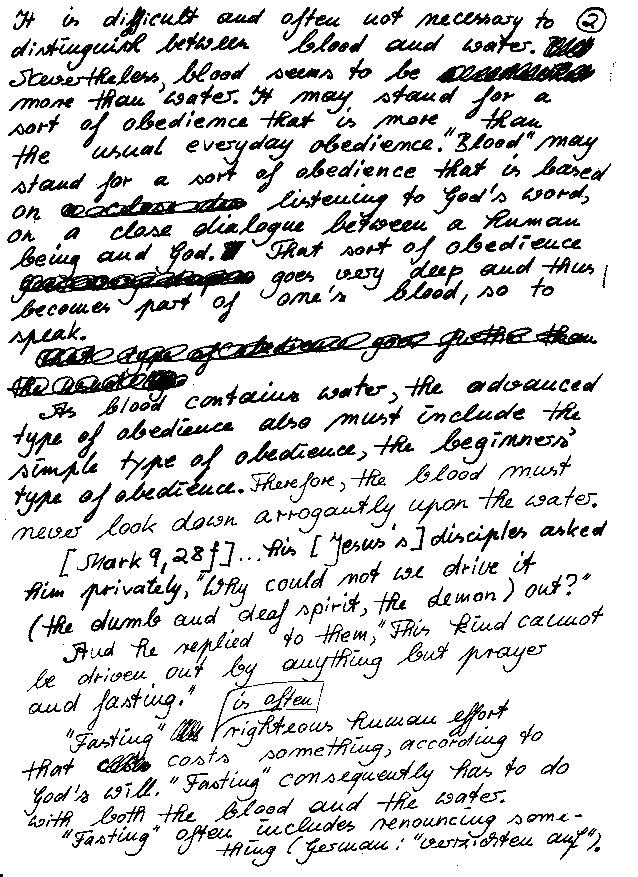 It is difficult and often not necessary to ②
distinguish between blood and water.
Nevertheless, blood seems to be
more than water. It may stand for a
sort of obedience that is more than
the usual everyday obedience. "Blood" may
stand for a sort of obedience that is based
on listening to God's word,
on a close dialogue between a human
being and God. That sort of obedience
goes very deep and thus
becomes part of one's blood, so to
speak.
As blood contains water, the advanced
type of obedience also must include the
simple type of obedience, the beginners'
type of obedience. Therefore, the blood must
never look down arrogantly upon the water.
[Mark 9,28f]... his [Jesus's] disciples asked
him privately, "Why could not we drive it
(the dumb and deaf spirit, the demon) out?"
And he replied to them, "This kind cannot
be driven out by anything but prayer
and fasting."
is often
"Fasting" righteous human effort
that costs something, according to
God's will. "Fasting" consequently has to do
with both the blood and the water.
"Fasting" often includes renouncing some-
thing (German: "verzichten auf").